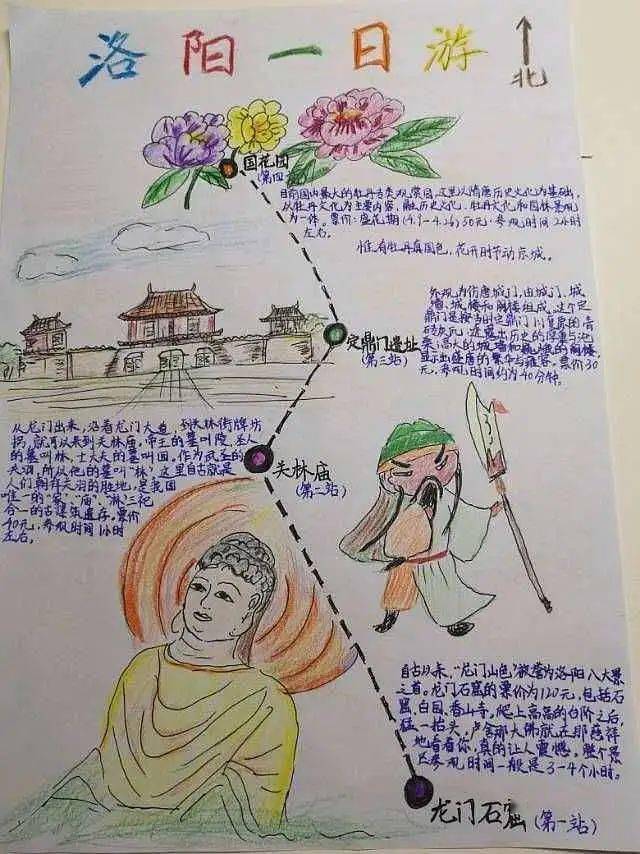 洛阳一日游
北
国花园
(第四
目前国内最大的牡丹古类观赏园,这里以隋唐历史文化为基础,
以牡丹文化为主要内容,融历史文化、牡丹文化和园林景观
为一体。票价:盛花期(4.9-4.26)50元,参观时间2小时
左右。
惟有牡丹真国色,花开时节动京城。
外观为仿唐城门,由城门、城
墙、城楼和阙楼组成,这个定
鼎门是按当时定鼎门1:1复原的青
砖灰瓦,还露出历史的厚重与沧
桑,高大的城墙和巍峨的阙楼,
显示出盛唐的繁华与雍容。票价30
元,参观时间约为40分钟。
定鼎门遗址
(第三站)
从龙门出来,沿着龙门大道,到关林街牌坊
拐,就可以来到关林庙,帝王的墓叫陵,圣人
的墓叫林,士大夫的墓叫园,作为武圣的
关羽,所以他的墓叫"林",这里自古就是
人们朝拜关羽的胜地,是我国
唯一的"冢"、"庙"、"林"三祀
合一的古建筑遗存。票价
40元,参观时间1小时
左右。
关林庙
(第二站)
自古以来,"龙门山色"被誉为洛阳八大景
之首。龙门石窟的票价为120元,包括石
窟、白园、香山寺。爬上高高的台阶之后,
猛一抬头,卢舍那大佛就在那慈祥
地看着你,真的让人震撼。整个景
区参观时间一般是3-4个小时。
龙门石窟(第一站)